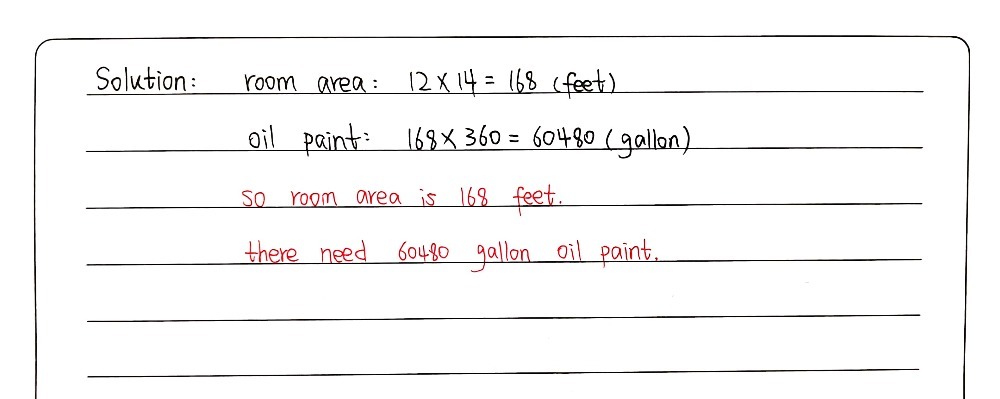 Solution: room area: 12 × 14 = 168 (feet)
oil paint: 168 × 360 = 60480 (gallon)
so room area is 168 feet.
there need 60480 gallon oil paint.